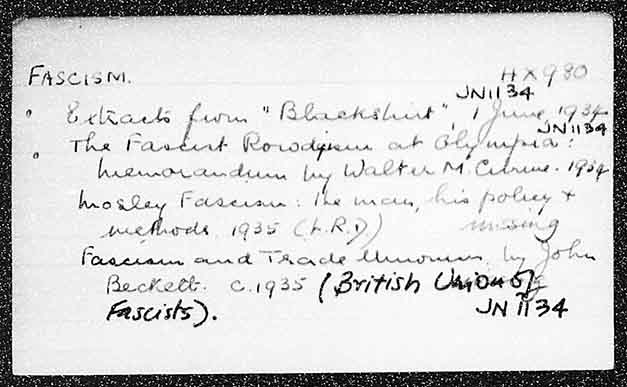 FASCISM. HX980
JN1134
° Extracts from "Blackshirt", 1 June 1934
JN1134
° The Fascist Rowdyism at Olympia:
memorandum by Walter M. Citrine. 1934
Mosley Fascism: the man, his policy +
methods 1935 (L.R.D) missing
Fascism and Trade Unionism by John
Beckett. c.1935 (British Union of
Fascists). JN1134